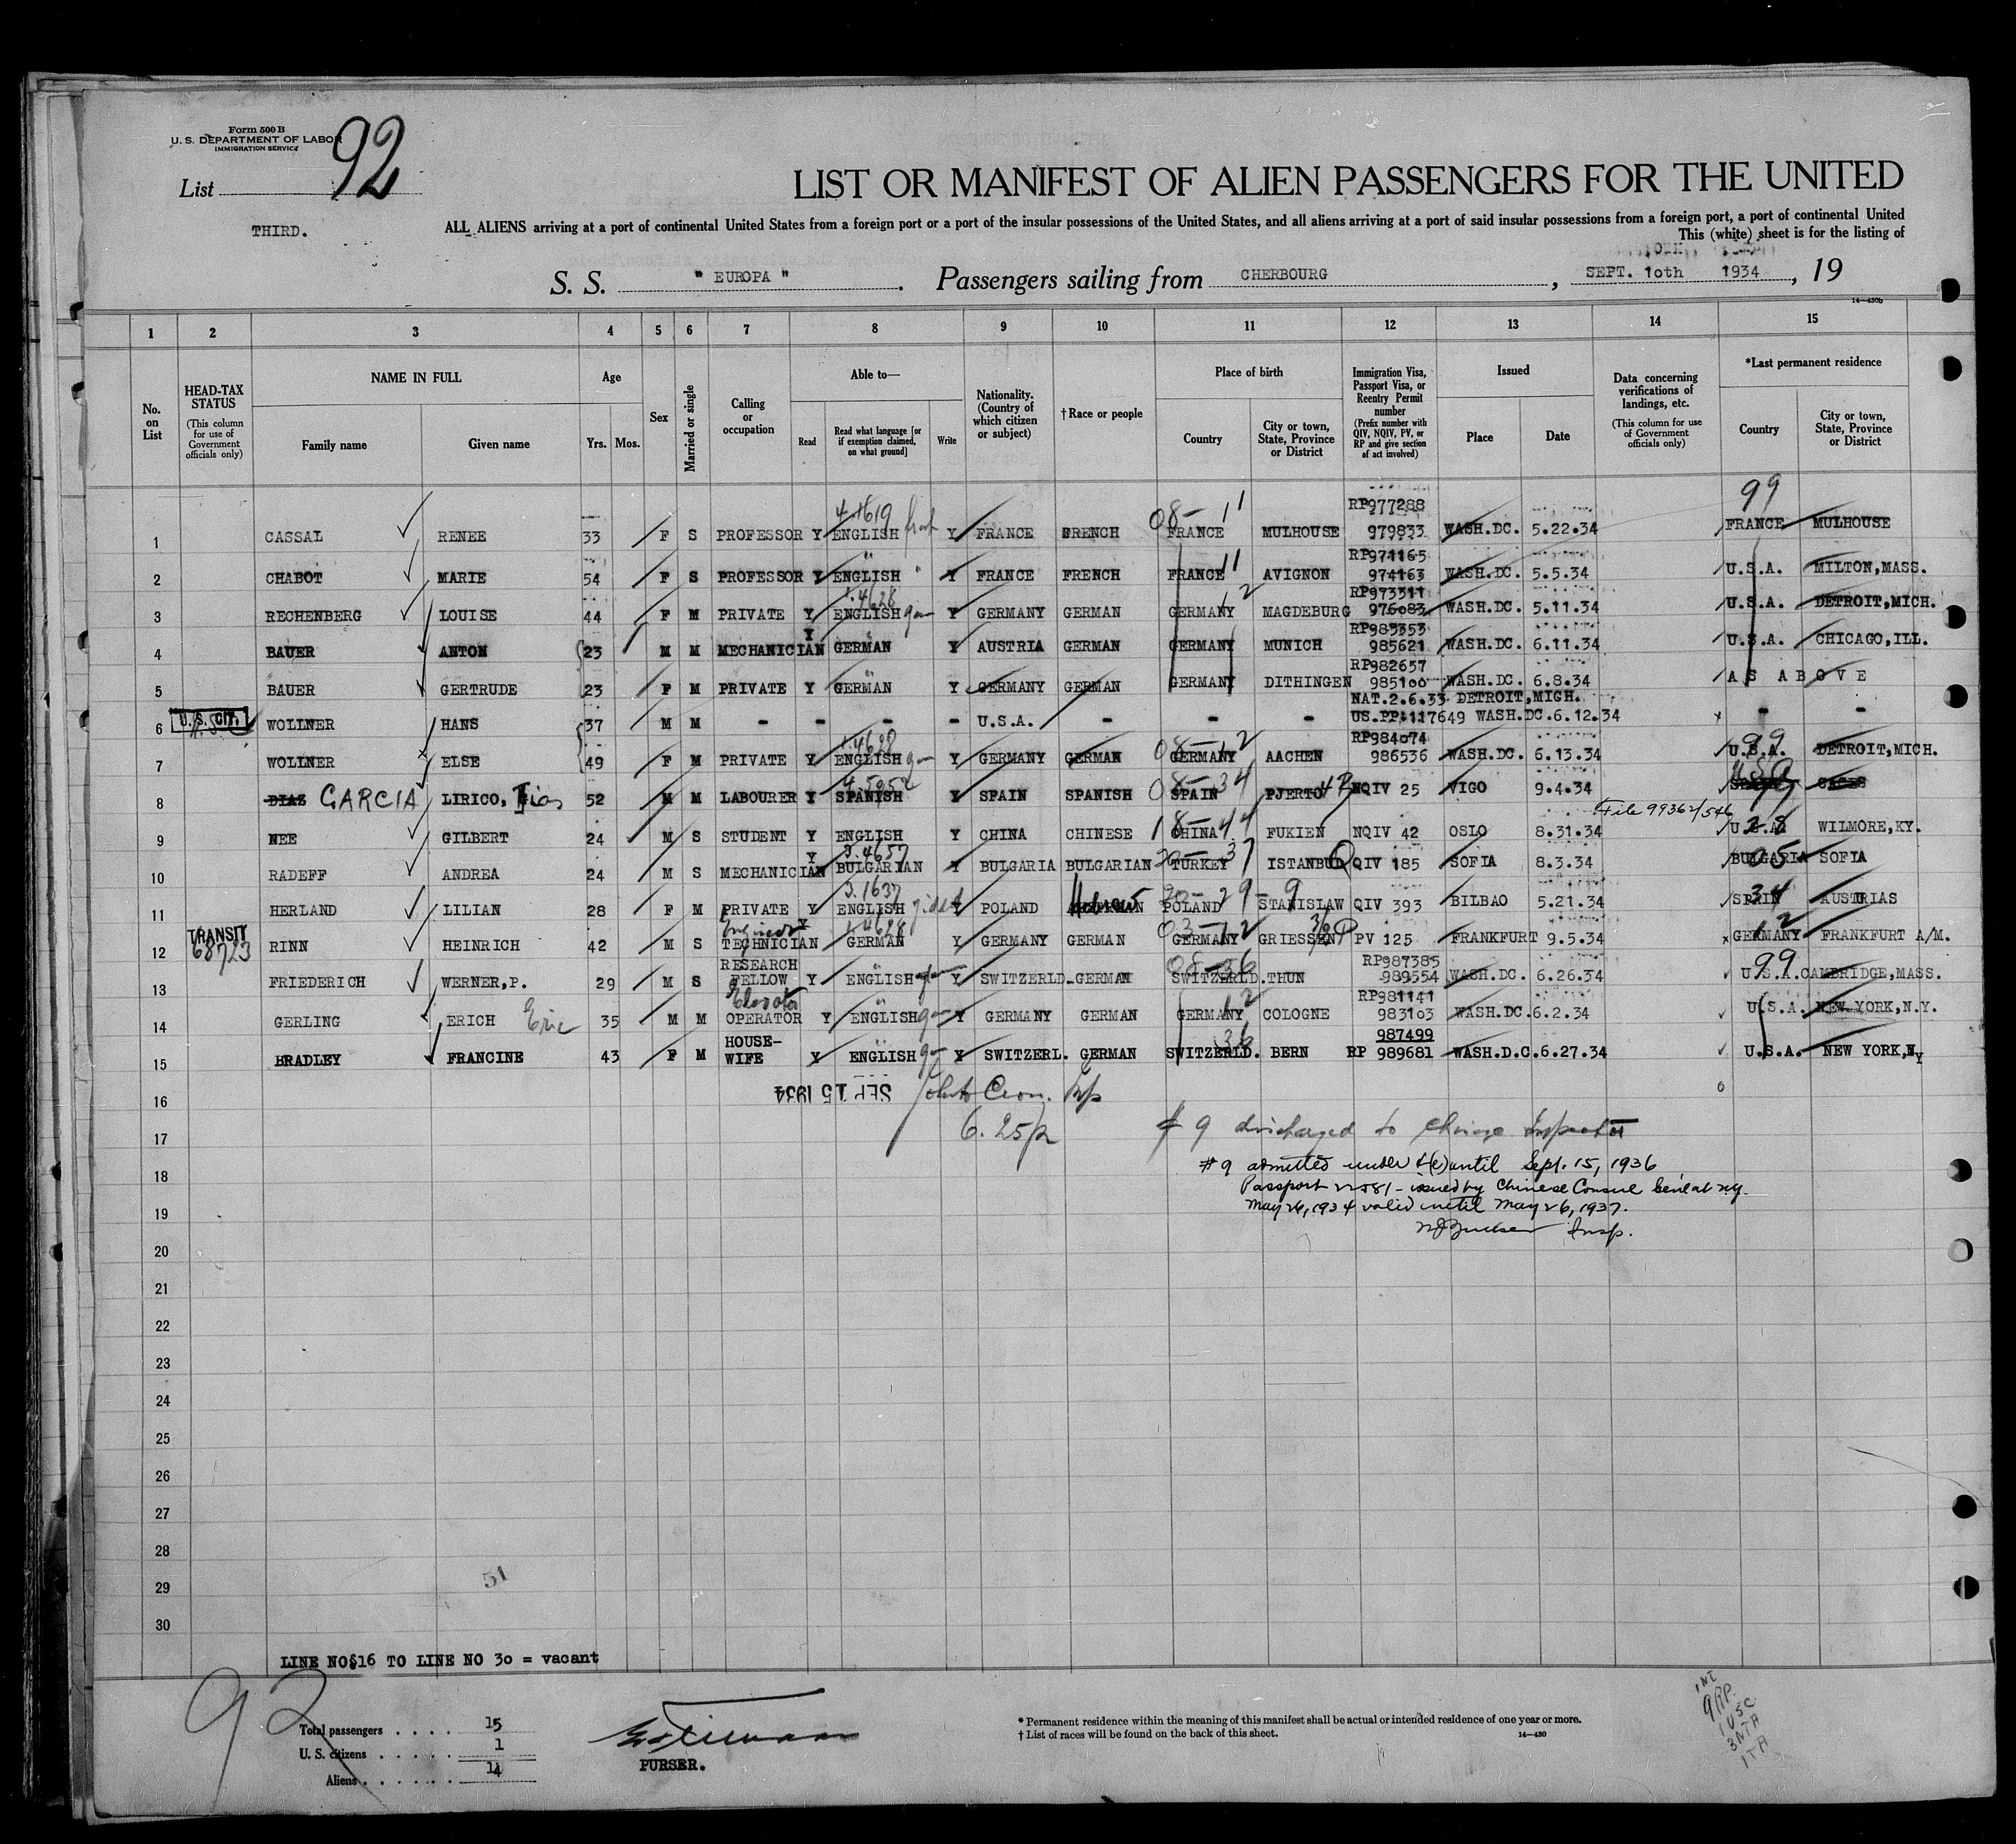 Form 500 B
U. S. DEPARTMENT OF LABOR
IMMIGRATION SERVICE
List 92
THIRD.
LIST OR MANIFEST OF ALIEN PASSENGERS FOR THE UNITED
ALL ALIENS arriving at a port of continental United States from a foreign port or a port of the insular possessions of the United States, and all aliens arriving at a port of said insular possessions from a foreign port, a port of continental United
This (white) sheet is for the listing of
S. S. " EUROPA " . Passengers sailing from CHERBOURG , SEPT. 10th 1934 , 19
14—430b
1 2 3 4 5 6 7 8 9 10 11 12 13 14 15
No. on List
HEAD-TAX STATUS (This column for use of Government officials only)
NAME IN FULL
Family name Given name
Age
Yrs. Mos.
Sex
Married or single
Calling or occupation
Able to—
Read
Read what language [or if exemption claimed, on what ground]
Write
Nationality. (Country of which citizen or subject)
†Race or people
Place of birth
Country
City or town, State, Province or District
Immigration Visa, Passport Visa, or Reentry Permit number (Prefix number with QIV, NQIV, PV, or RP and give section of act involved)
Issued
Place Date
Data concerning verifications of landings, etc. (This column for use of Government officials only)
*Last permanent residence
Country
City or town, State, Province or District
4.1619 08- 11 RP977288 99
1 CASSAL RENEE 33 F S PROFESSOR Y ENGLISH Y FRANCE FRENCH FRANCE MULHOUSE 979833 WASH.DC. 5.22.34 FRANCE MULHOUSE
11 RP971165
2 CHABOT MARIE 54 F S PROFESSOR Y ENGLISH " Y FRANCE FRENCH FRANCE AVIGNON 974163 WASH.DC. 5.5.34 U.S.A. MILTON,MASS.
1.4628 12 RP973311
3 RECHENBERG LOUISE 44 F M PRIVATE Y ENGLISH Y GERMANY GERMAN GERMANY MAGDEBURG 976083 WASH.DC. 5.11.34 U.S.A. DETROIT,MICH.
RP983353
4 BAUER ANTON 23 M M MECHANICIAN Y GERMAN Y AUSTRIA GERMAN GERMANY MUNICH 985621 WASH.DC. 6.11.34 U.S.A. CHICAGO,ILL.
RP982657
5 BAUER GERTRUDE 23 F M PRIVATE Y GERMAN Y GERMANY GERMAN GERMANY DITHINGEN 985100 WASH.DC. 6.8.34 AS ABOVE
NAT.2.6.33 DETROIT,MICH.
6 U.S. CIT. WOLLNER HANS 37 M M - - - - U.S.A. - - - US.PP:117649 WASH.DC.6.12.34 - -
1.4628 08- 12 RP984074 99
7 WOLLNER ELSE 49 F M PRIVATE Y ENGLISH Y GERMANY GERMAN GERMANY AACHEN 986536 WASH.DC. 6.13.34 U.S.A. DETROIT,MICH.
08- 34
8 DIAZ GARCIA LIRICO, Dias 52 M M LABOURER Y SPANISH Y SPAIN SPANISH SPAIN PJERTO NQIV 25 VIGO 9.4.34
File 99362/546
9 NEE GILBERT 24 M S STUDENT Y ENGLISH Y CHINA CHINESE 18- CHINA 44 FUKIEN NQIV 42 OSLO 8.31.34 U.S.A. WILMORE,KY.
3.4657 37 05
10 RADEFF ANDREA 24 M S MECHANICIAN Y BULGARIAN Y BULGARIA BULGARIAN TURKEY ISTANBUL QIV 185 SOFIA 8.3.34 BULGARIA SOFIA
3.1637 29-9 34
11 HERLAND LILIAN 28 F M PRIVATE Y ENGLISH Y POLAND Hebrew POLAND STANISLAW QIV 393 BILBAO 5.21.34 SPAIN AUSTRIAS
TRANSIT Engineer 03- 12 12
12 68723 RINN HEINRICH 42 M S TECHNICIAN Y GERMAN Y GERMANY GERMAN GERMANY GRIESSEN PV 125 FRANKFURT 9.5.34 GERMANY FRANKFURT A/M.
RESEARCH 08-36 RP987385 99
13 FRIEDERICH WERNER,P. 29 M S FELLOW Y ENGLISH Y SWITZERLD.GERMAN SWITZERLD.THUN 989554 WASH.DC. 6.26.34 U.S.A.CAMBRIDGE,MASS.
Elevator 12 RP981141
14 GERLING ERICH Eric 35 M M OPERATOR Y ENGLISH Y GERMANY GERMAN GERMANY COLOGNE 983103 WASH.DC.6.2.34 U.S.A. NEW YORK,N.Y.
HOUSE- 36 987499
15 BRADLEY FRANCINE 43 F M WIFE Y ENGLISH Y SWITZERL. GERMAN SWITZERLD. BERN RP 989681 WASH.D.C.6.27.34 U.S.A. NEW YORK,NY
16 SEP 15 1934
17 6.25 # 9 discharged to Chinese Inspector
18 #9 admitted under 4(e) until Sept. 15, 1936
Passport 22581 - issued by Chinese Consul Genl at N.Y.
19 May 26, 1934 valid until May 26, 1937.
Insp.
20
21
22
23
24
25
26
27
28
29 51
30
LINE NO§16 TO LINE NO 30 = vacant
92
Total passengers . . . . 15
U. S. citizens . . . . . 1
Aliens . . . . . . 14
PURSER.
* Permanent residence within the meaning of this manifest shall be actual or intended residence of one year or more.
† List of races will be found on the back of this sheet. 14—430
9 RP.
1 USC